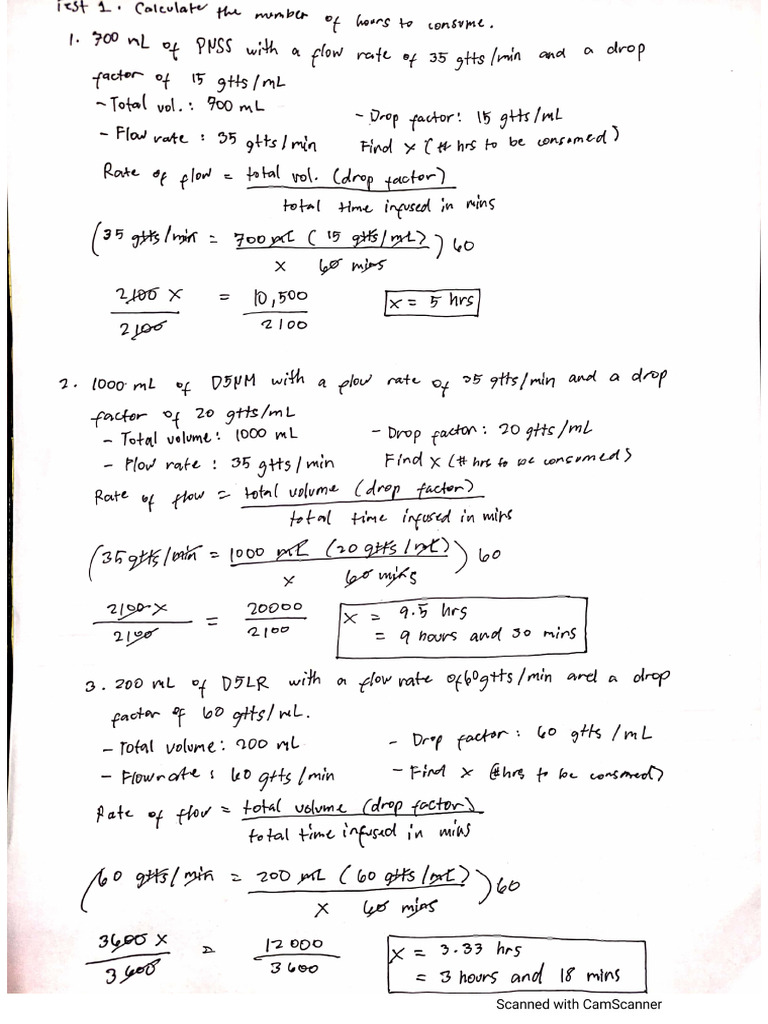 Test 1. Calculate the number of hours to consume.
1. 700 mL of PNSS with a flow rate of 35 gtts/min and a drop
factor of 15 gtts/mL
- Total vol.: 700 mL
- Drop factor: 15 gtts/mL
- Flow rate : 35 gtts/min
Find x (# hrs to be consumed)
Rate of flow = total vol. (drop factor)
total time infused in mins
(35 gtts/min = 700 mL (15 gtts/mL)) 60
x 60 mins
2100 x = 10,500
2100 2100
x = 5 hrs
2. 1000 mL of D5NM with a flow rate of 35 gtts/min and a drop
factor of 20 gtts/mL
- Total volume: 1000 mL
- Drop factor: 20 gtts/mL
- Flow rate : 35 gtts/min
Find x (# hrs to be consumed)
Rate of flow = total volume (drop factor)
total time infused in mins
(35 gtts/min = 1000 mL (20 gtts/mL)) 60
x 60 mins
2100 x = 20000
2100 2100
x = 9.5 hrs
= 9 hours and 30 mins
3. 200 mL of D5LR with a flow rate of 60 gtts/min and a drop
factor of 60 gtts/mL.
- Total volume: 200 mL
- Drop factor: 60 gtts/mL
- Flow rate : 60 gtts/min
- Find x (# hrs to be consumed)
Rate of flow = total volume (drop factor)
total time infused in mins
(60 gtts/min = 200 mL (60 gtts/mL)) 60
x 60 mins
3600 x = 12000
3600 3600
x = 3.33 hrs
= 3 hours and 18 mins
Scanned with CamScanner